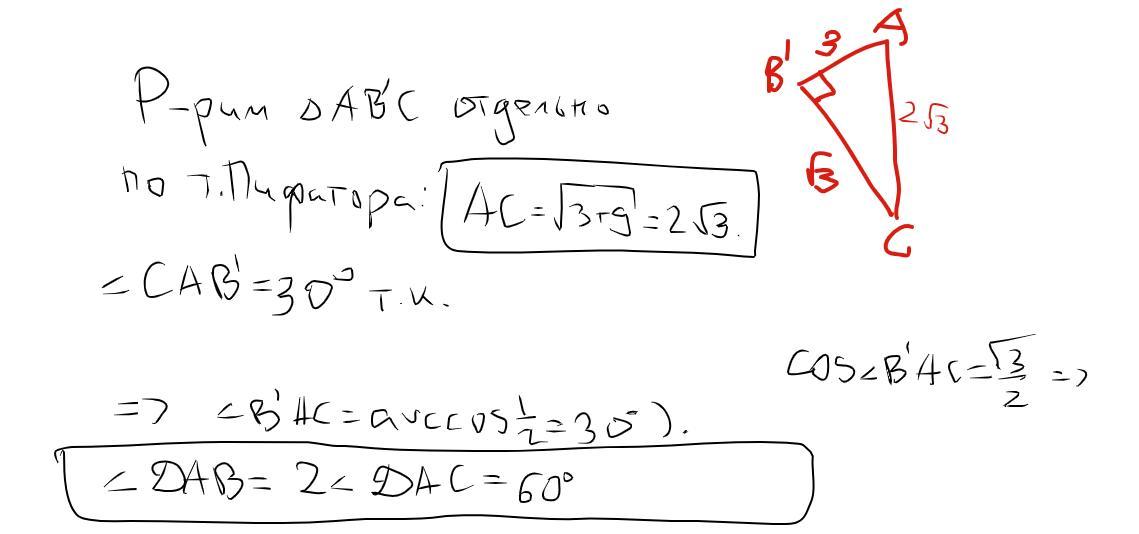 Р-рим △AB'C отдельно
по т.Пифагора: AC=√3+9=2√3.
∠CAB'=30° т.к.
cos∠B'AC=√3/2 =>
=> ∠B'AC=arccos 1/2=30°).
∠DAB= 2∠DAC=60°
A
3
B'
2√3
√3
C